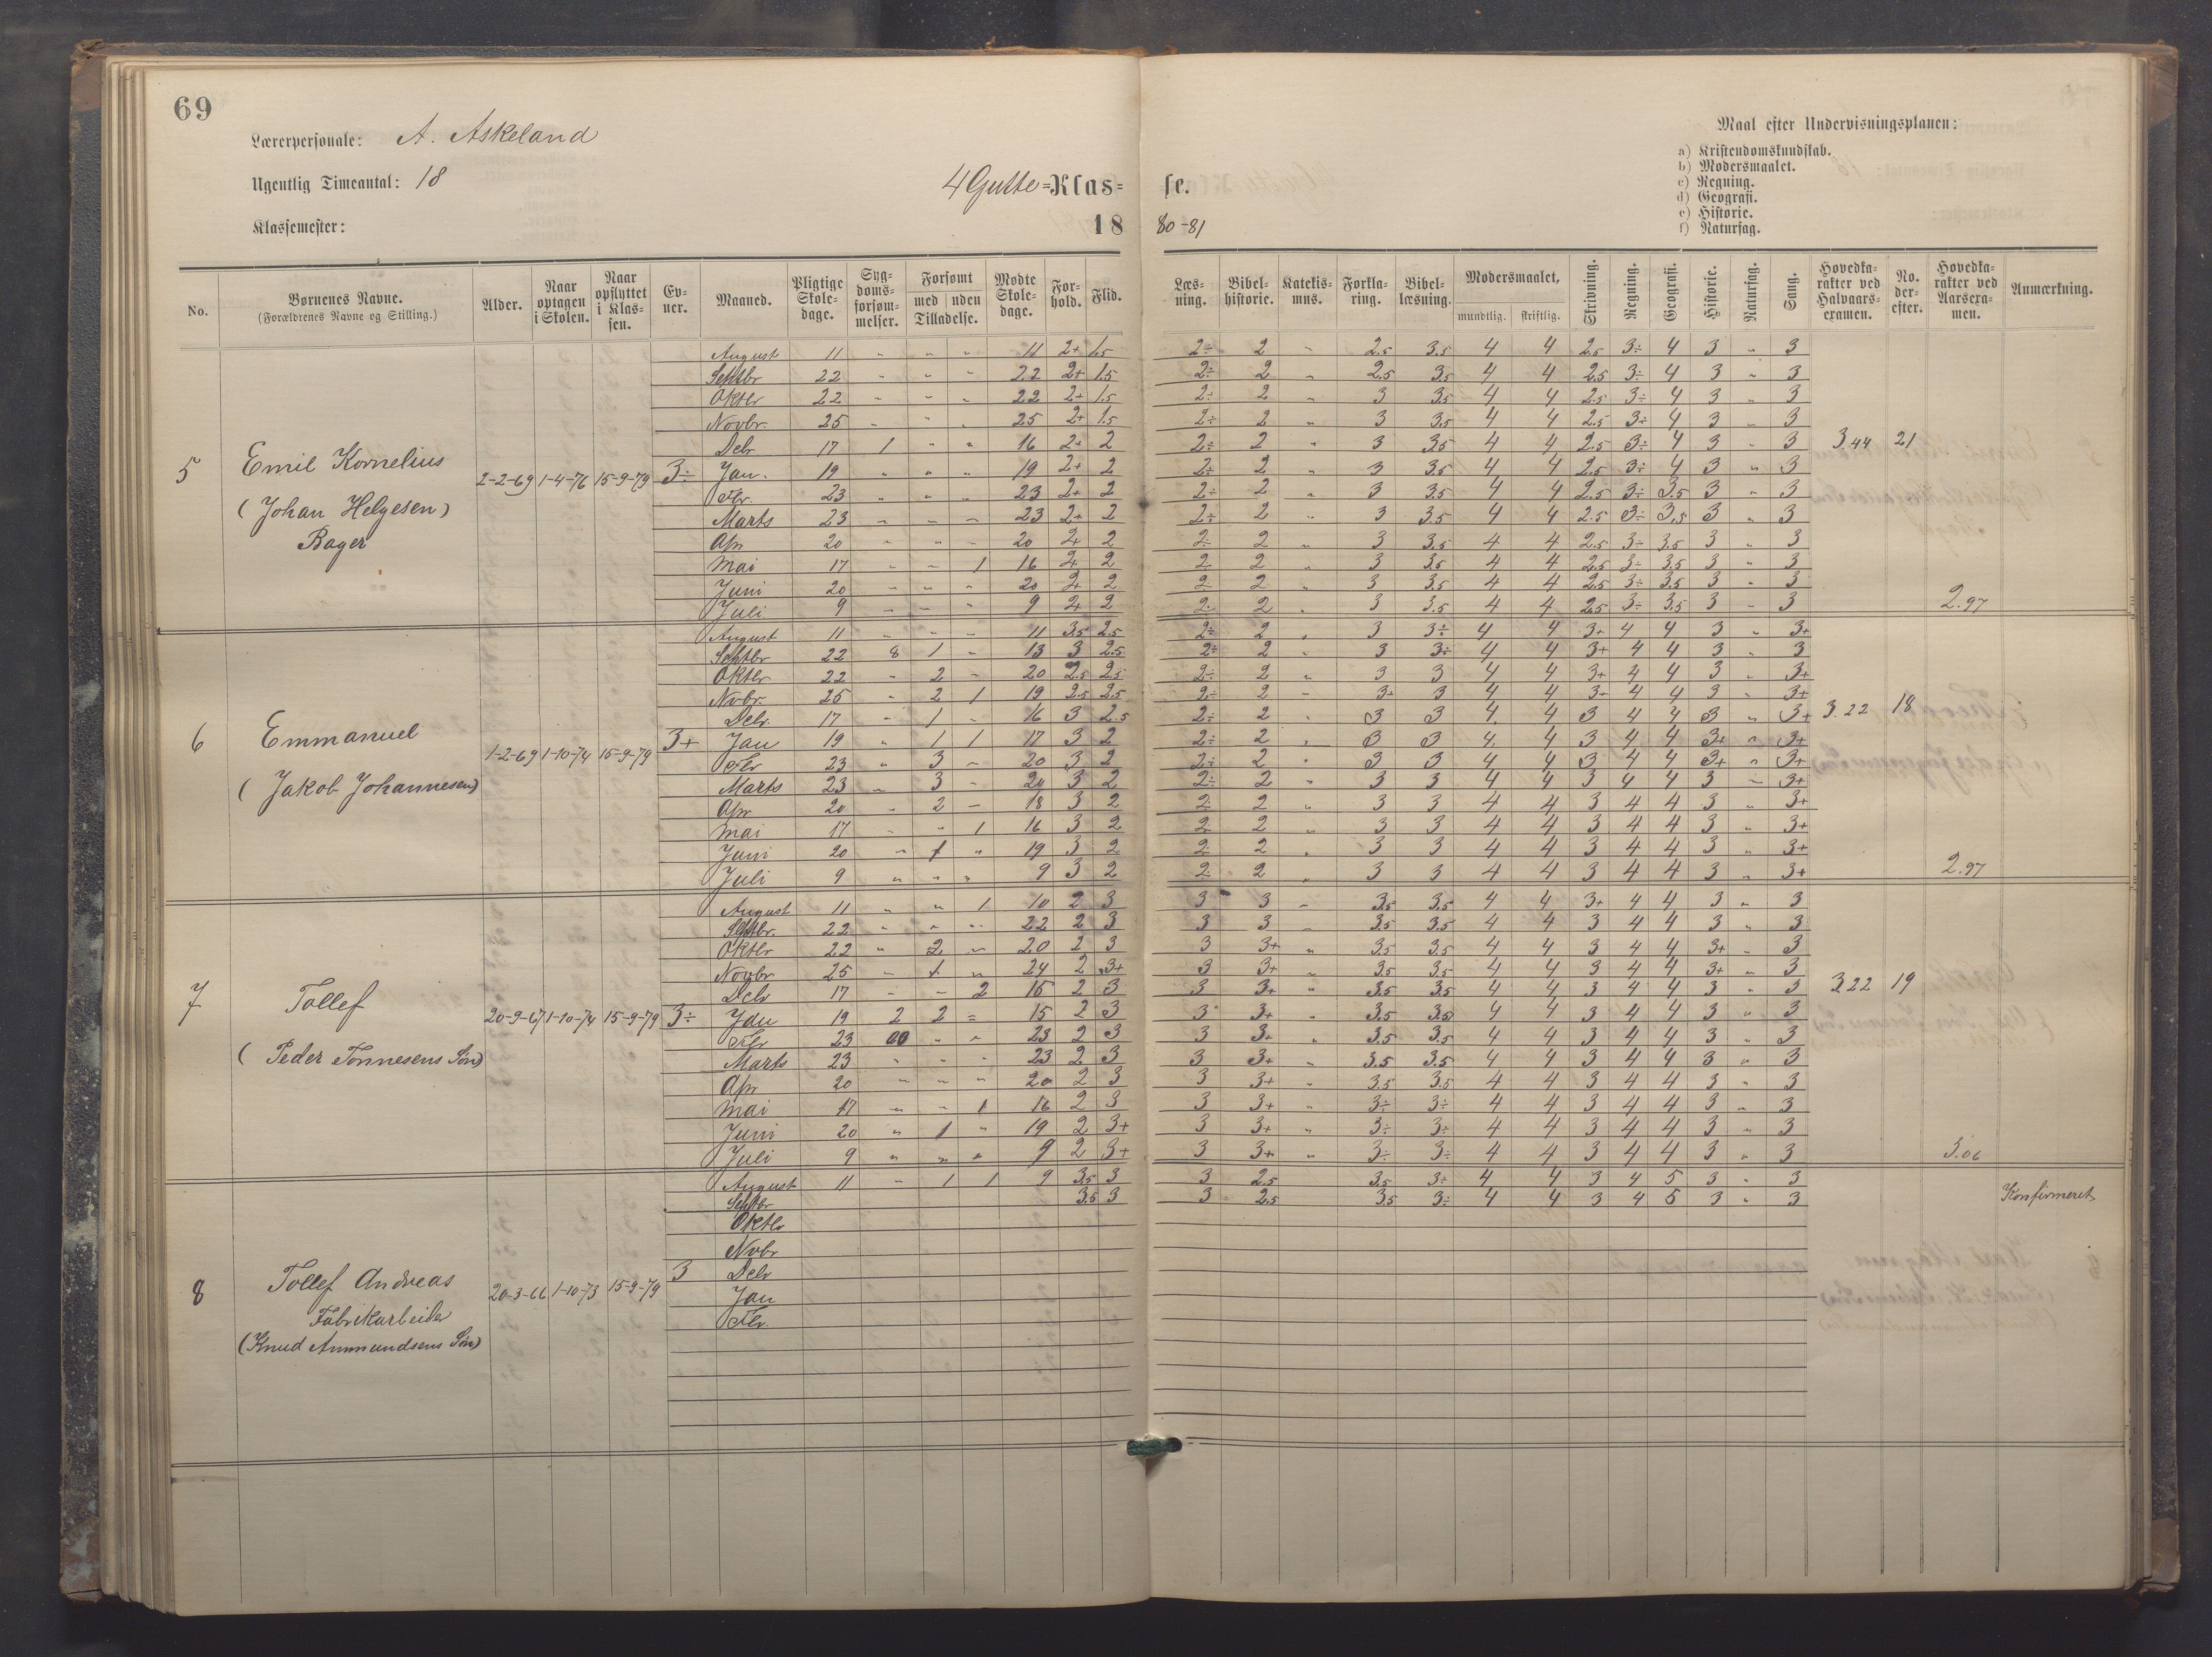 69
Lærerpersonale: A. Askeland
Ugentlig Timeantal: 18
Klassemester:
4 Gutte=Klas= se.
18 80-81
Maal efter Undervisningsplanen:
a) Kristendomskundskab.
b) Modersmaalet.
c) Regning.
d) Geografi.
e) Historie.
f) Naturfag.
No. Børnenes Navne. (Forældrenes Navne og Stilling.) Alder. Naar optagen i Skolen. Naar opflyttet i Klassen. Evner. Maaned. Pligtige Skoledage. Sygdomsforsømmelser. Forsømt med uden Tilladelse. Mødte Skoledage. Forhold. Flid. Læsning. Bibelhistorie. Katekismus. Forklaring. Bibellæsning. Modersmaalet, mundtlig. skriftlig. Skrivning. Regning. Geografi. Historie. Naturfag. Sang. Hovedkarakter ved Halvaarsexamen. No. derefter. Hovedkarakter ved Aarsexamen. Anmærkning.
5 Emil Kornelius
(Johan Helgesen)
Bager
2-2-69 1-4-76 15-9-79 3÷
August 11 " " " 11 2+ 1.5 2÷ 2 " 2.5 3.5 4 4 2.5 3÷ 4 3 " 3
Septbr 22 " " " 22 2+ 1.5 2÷ 2 " 2.5 3.5 4 4 2.5 3÷ 4 3 " 3
Oktbr 22 " " " 22 2+ 1.5 2÷ 2 " 3 3.5 4 4 2.5 3÷ 4 3 " 3
Novbr. 25 " " " 25 2+ 1.5 2÷ 2 " 3 3.5 4 4 2.5 3÷ 4 3 " 3
Debr 17 1 " " 16 2+ 2 2÷ 2 " 3 3.5 4 4 2.5 3÷ 4 3 " 3 3.44 21
Jan. 19 " " " 19 2+ 2 2÷ 2 " 3 3.5 4 4 2.5 3÷ 4 3 " 3
Febr. 23 " " " 23 2+ 2 2÷ 2 " 3 3.5 4 4 2.5 3÷ 3.5 3 " 3
Marts 23 " " " 23 2+ 2 2÷ 2 " 3 3.5 4 4 2.5 3÷ 3.5 3 " 3
Apr 20 " " " 20 2+ 2 2÷ 2 " 3 3.5 4 4 2.5 3÷ 3.5 3 " 3
Mai 17 " " 1 16 2+ 2 2 2 " 3 3.5 4 4 2.5 3÷ 3.5 3 " 3
Juni 20 " " " 20 2+ 2 2 2 " 3 3.5 4 4 2.5 3÷ 3.5 3 " 3
Juli 9 " " " 9 2+ 2 2 2 " 3 3.5 4 4 2.5 3÷ 3.5 3 " 3 2.97
6 Emmanuel
(Jakob Johannesen)
1-2-69 1-10-74 15-9-79 3+
August 11 " " " 11 3.5 2.5 2÷ 2 " 3 3÷ 4 4 3+ 4 4 3 " 3+
Septbr 22 8 1 " 13 3 2.5 2÷ 2 " 3 3÷ 4 4 3+ 4 4 3 " 3
Oktbr 22 " 2 " 20 2.5 2.5 2÷ 2 " 3 3 4 4 3+ 4 4 3 " 3+
Nvbr. 25 " 2 1 19 2.5 2.5 2÷ 2 " 3+ 3 4 4 3+ 4 4 3 " 3+
Debr. 17 " 1 " 16 3 2.5 2÷ 2 " 3 3 4 4 3 4 4 3 " 3+ 3.22 18
Jan 19 " 1 1 17 3 2 2÷ 2 " 3 3 4 4 3 4 4 3+ " 3+
Febr 23 " 3 " 20 3 2 2÷ 2 " 3 3 4 4 3 4 4 3+ " 3+
Marts 23 " 3 " 20 3 2 2÷ 2 " 3 3 4 4 3 4 4 3 " 3+
Apr 20 " 2 " 18 3 2 2 2 " 3 3 4 4 3 4 4 3 " 3+
Mai 17 " " 1 16 3 2 2 2 " 3 3 4 4 3 4 4 3 " 3+
Juni 20 " 1 " 19 3 2 2 2 " 3 3 4 4 3 4 4 3 " 3+
Juli 9 " " " 9 3 2 2 2 " 3 3 4 4 3 4 4 3 " 3+ 2.97
7 Tollef
(Peder Tonnesens Søn)
20-9-67 1-10-74 15-9-79 3÷
August 11 " " 1 10 2 3 3 3 " 3.5 3.5 4 4 3+ 4 4 3 " 3
Septbr. 22 " " " 22 2 3 3 3 " 3.5 3.5 4 4 3 4 4 3 " 3
Oktbr 22 " 2 " 20 2 3 3 3+ " 3.5 3.5 4 4 3 4 4 3+ " 3
Novbr 25 " 1 " 24 2 3+ 3 3+ " 3.5 3.5 4 4 3 4 4 3+ " 3
Debr 17 " " 2 15 2 3 3 3+ " 3.5 3.5 4 4 3 4 4 3 " 3 3.22 19
Jan 19 2 2 " 15 2 3 3 3+ " 3.5 3.5 4 4 3 4 4 3 " 3
Febr 23 " " 23 2 3 3 3+ " 3.5 3.5 4 4 3 4 4 3 " 3
Marts 23 " " " 23 2 3 3 3+ " 3.5 3.5 4 4 3 4 4 3 " 3
Apr 20 " " " 20 2 3 3 3+ " 3.5 3.5 4 4 3 4 4 3 " 3
Mai 17 " " 1 16 2 3 3 3+ " 3÷ 3÷ 4 4 3 4 4 3 " 3
Juni 20 " 1 " 19 2 3+ 3 3+ " 3÷ 3÷ 4 4 3 4 4 3 " 3
Juli 9 " " " 9 2 3+ 3 3+ " 3÷ 3÷ 4 4 3 4 4 3 " 3 3.06
8 Tollef Andreas
Fabrikarbeider
(Knud Ammundsens Søn)
20-3-66 1-10-73 15-9-79 3
August 11 " 1 1 9 3.5 3 3 2.5 3.5 3÷ 4 4 3 4 5 3 " 3
Septbr 3.5 3 3 2.5 3.5 3÷ 4 4 3 4 5 3 " 3 Konfirmeret
Oktbr
Nvbr
Debr
Jan
Febr.